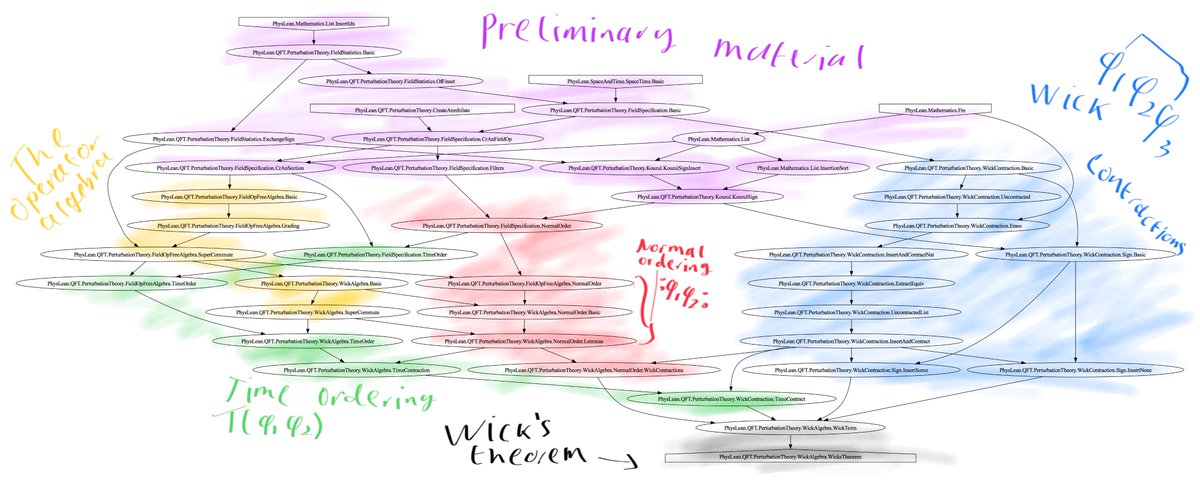 PhysLean.Mathematics.List.InsertIdx
Preliminary material
PhysLean.QFT.PerturbationTheory.FieldStatistics.Basic
PhysLean.QFT.PerturbationTheory.FieldStatistics.OfFinset
PhysLean.SpaceAndTime.SpaceTime.Basic
φ₁φ₂φ₃
Wick
contractions
PhysLean.QFT.PerturbationTheory.CreateAnnihilate
PhysLean.QFT.PerturbationTheory.FieldSpecification.Basic
PhysLean.Mathematics.Fin
PhysLean.QFT.PerturbationTheory.FieldStatistics.ExchangeSign
PhysLean.QFT.PerturbationTheory.FieldSpecification.CrAnFieldOp
PhysLean.Mathematics.List
The
operator
algebra
PhysLean.QFT.PerturbationTheory.FieldSpecification.CrAnSection
PhysLean.QFT.PerturbationTheory.FieldSpecification.Filters
PhysLean.QFT.PerturbationTheory.Koszul.KoszulSignInsert
PhysLean.Mathematics.List.InsertionSort
PhysLean.QFT.PerturbationTheory.WickContraction.Basic
PhysLean.QFT.PerturbationTheory.FieldOpFreeAlgebra.Basic
PhysLean.QFT.PerturbationTheory.Koszul.KoszulSign
PhysLean.QFT.PerturbationTheory.WickContraction.Uncontracted
PhysLean.QFT.PerturbationTheory.FieldOpFreeAlgebra.Grading
PhysLean.QFT.PerturbationTheory.FieldSpecification.NormalOrder
PhysLean.QFT.PerturbationTheory.WickContraction.Erase
PhysLean.QFT.PerturbationTheory.FieldOpFreeAlgebra.SuperCommute
PhysLean.QFT.PerturbationTheory.FieldSpecification.TimeOrder
Normal
ordering
:φ₁φ₂:
PhysLean.QFT.PerturbationTheory.WickContraction.InsertAndContractNat
PhysLean.QFT.PerturbationTheory.WickContraction.Sign.Basic
PhysLean.QFT.PerturbationTheory.FieldOpFreeAlgebra.TimeOrder
PhysLean.QFT.PerturbationTheory.WickAlgebra.Basic
PhysLean.QFT.PerturbationTheory.FieldOpFreeAlgebra.NormalOrder
PhysLean.QFT.PerturbationTheory.WickContraction.ExtractEquiv
PhysLean.QFT.PerturbationTheory.WickAlgebra.SuperCommute
PhysLean.QFT.PerturbationTheory.WickAlgebra.NormalOrder.Basic
PhysLean.QFT.PerturbationTheory.WickContraction.UncontractedList
PhysLean.QFT.PerturbationTheory.WickAlgebra.TimeOrder
PhysLean.QFT.PerturbationTheory.WickAlgebra.NormalOrder.Lemmas
PhysLean.QFT.PerturbationTheory.WickContraction.InsertAndContract
PhysLean.QFT.PerturbationTheory.WickAlgebra.TimeContraction
PhysLean.QFT.PerturbationTheory.WickAlgebra.NormalOrder.WickContractions
PhysLean.QFT.PerturbationTheory.WickContraction.Sign.InsertSome
PhysLean.QFT.PerturbationTheory.WickContraction.Sign.InsertNone
Time ordering
T(φ₁φ₂)
PhysLean.QFT.PerturbationTheory.WickContraction.TimeContract
Wick's
theorem
PhysLean.QFT.PerturbationTheory.WickAlgebra.WickTerm
PhysLean.QFT.PerturbationTheory.WickAlgebra.WicksTheorem